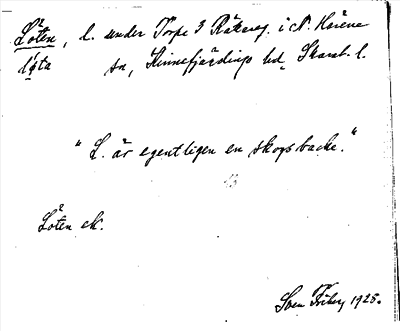 Löten, l. under Torpe 3 Räkneg. i N. Härene
lø̀ta sn, Kinnefjärdings hd, Skarab. l.
"L. är egentligen en skogsbacke."
13
Löten ek.
Sven Friberg 1925.